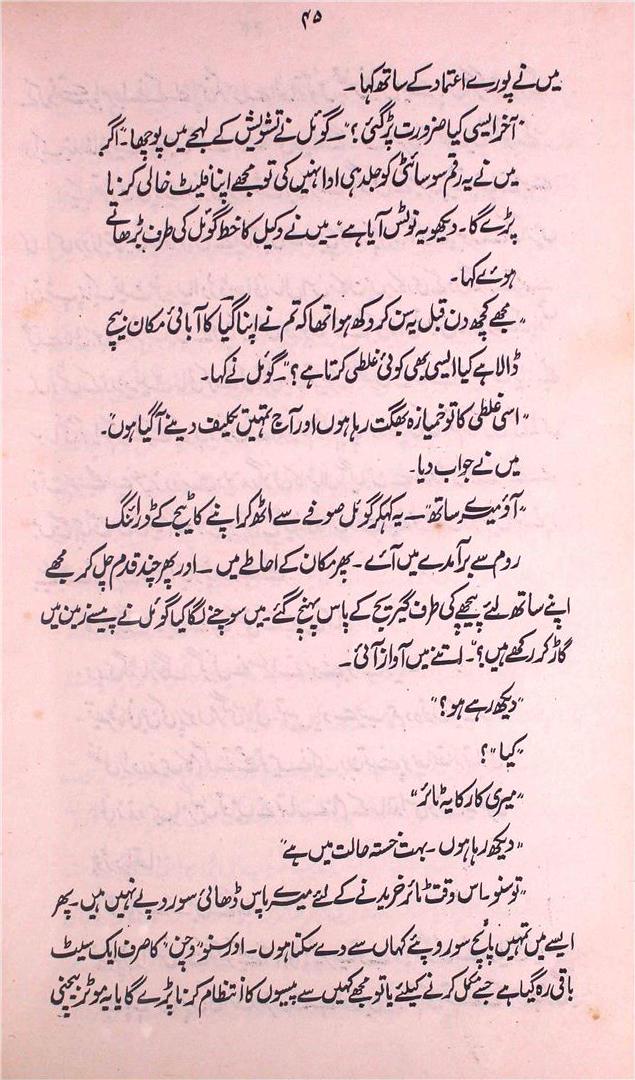 ۴۵
میں نے پورے اعتماد کے ساتھ کہا۔
"آخر ایسی کیا ضرورت پڑ گئی؟"۔ گوئل نے تشویش کے لہجے میں پوچھا۔ "اگر
میں نے یہ رقم سوسائٹی کو جلد ہی ادا نہیں کی تو مجھے اپنا فلیٹ خالی کرنا
پڑے گا۔ دیکھو یہ نوٹس آیا ہے"۔ میں نے وکیل کا خط گوئل کی طرف بڑھاتے
ہوئے کہا۔
"مجھے کچھ دن قبل یہ سن کر دکھ ہوا تھا کہ تم نے اپنا گیا کا آبائی مکان بیچ
ڈالا ہے کیا ایسی بھی کوئی غلطی کرتا ہے؟"۔ گوئل نے کہا۔
"اسی غلطی کا تو خمیازہ بھگت رہا ہوں اور آج تمہیں تکلیف دینے آ گیا ہوں"۔
میں نے جواب دیا۔
"آؤ میرے ساتھ"۔ یہ کہکر گوئل صوفے سے اٹھ کر اپنے کاٹیج کے ڈرائنگ
روم سے برآمدے میں آئے۔ پھر مکان کے احاطے میں۔ اور پھر چند قدم چل کر مجھے
اپنے ساتھ لئے پیچھے کی طرف گیریج کے پاس پہنچ گئے۔ میں سوچنے لگا کیا گوئل نے پیسے زمین میں
گاڑ کر رکھے ہیں؟"۔ اتنے میں آواز آئی۔
"دیکھ رہے ہو؟"
"کیا"؟
"میری کار کا یہ ٹائر"
"دیکھ رہا ہوں۔ بہت خستہ حالت میں ہے"
"تو سنو۔ اس وقت ٹائر خریدنے کے لئے میرے پاس ڈھائی سو روپے نہیں ہیں۔ پھر
ایسے میں تمہیں پانچ سو روپئے کہاں سے دے سکتا ہوں۔ اور سنو "وچن" کا صرف ایک سیٹ
باقی رہ گیا ہے جسے مکمل کرنے کیلئے یا تو مجھے کہیں سے پیسوں کا انتظام کرنا پڑے گا یا یہ موٹر بیچنی